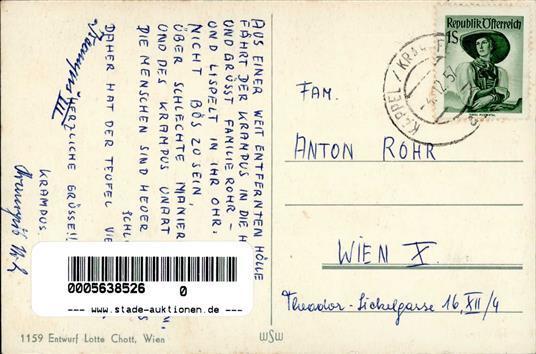 AUS EINER WEIT ENTFERNTEN HÖLLE
FÄHRT DER KRAMPUS IN DIE H
UND GRÜSST FAMILIE ROHR –
UND LISPELT IN IHR OHR:
NICHT BÖS ZU SEIN,
ÜBER SCHLECHTE MANIER
UND DES KRAMPUS UNART
DIE MENSCHEN SIND HEUER
SCHL
DAHER HAT DER TEUFEL VIE
HERZLICHE GRÜSSE!!
KRAMPUS.
III
Republik Österreich
1S
KAPPEL / KRAP
12.5
FAM.
ANTON ROHR
WIEN X.
Theodor-Sickelgasse 16, XII/4
0005638526 0
--- www.stade-auktionen.de ---
1159 Entwurf Lotte Chott, Wien
WSW